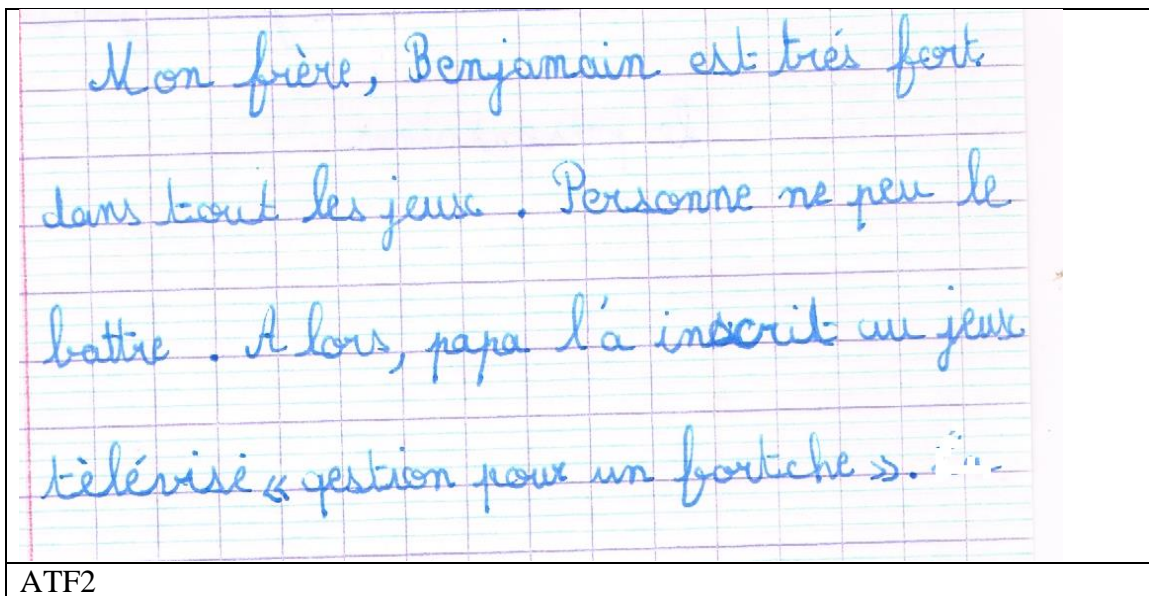 Mon frère, Benjamain est trés fort
dans tout les jeux. Personne ne peu le
battre. Alors, papa l'a inscrit au jeux
tèlévisé « qestion pour un fortiche ».
ATF2